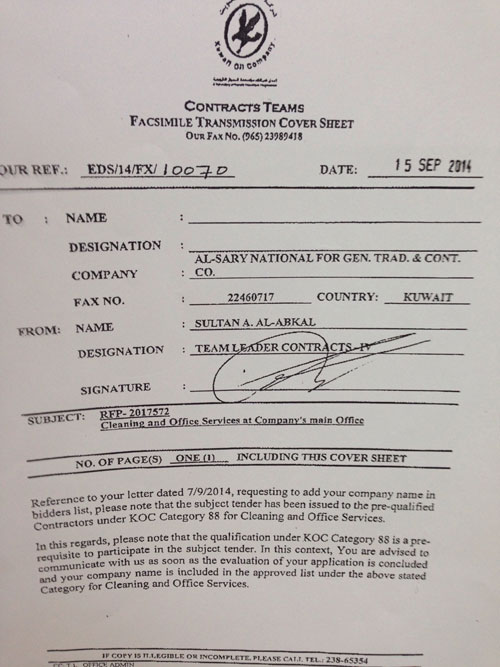 Kuwait Oil Company
CONTRACTS TEAMS
FACSIMILE TRANSMISSION COVER SHEET
OUR FAX NO. (965) 23989418
OUR REF.: EDS/14/FX/ 10070 DATE: 15 SEP 2014
TO : NAME :
DESIGNATION :
AL-SARY NATIONAL FOR GEN. TRAD. & CONT.
COMPANY : CO.
FAX NO. : 22460717 COUNTRY: KUWAIT
FROM: NAME : SULTAN A. AL-ABKAL
DESIGNATION : TEAM LEADER CONTRACTS -IV
SIGNATURE :
SUBJECT: RFP- 2017572
Cleaning and Office Services at Company's main Office
NO. OF PAGE(S) ONE (1) INCLUDING THIS COVER SHEET
Reference to your letter dated 7/9/2014, requesting to add your company name in
bidders list, please note that the subject tender has been issued to the pre-qualified
Contractors under KOC Category 88 for Cleaning and Office Services.
In this regards, please note that the qualification under KOC Category 88 is a pre-
requisite to participate in the subject tender. In this context, You are advised to
communicate with us as soon as the evaluation of your application is concluded
and your company name is included in the approved list under the above stated
Category for Cleaning and Office Services.
IF COPY IS ILLEGIBLE OR INCOMPLETE, PLEASE CALL TEL.: 238-65354
OFFICE ADMIN